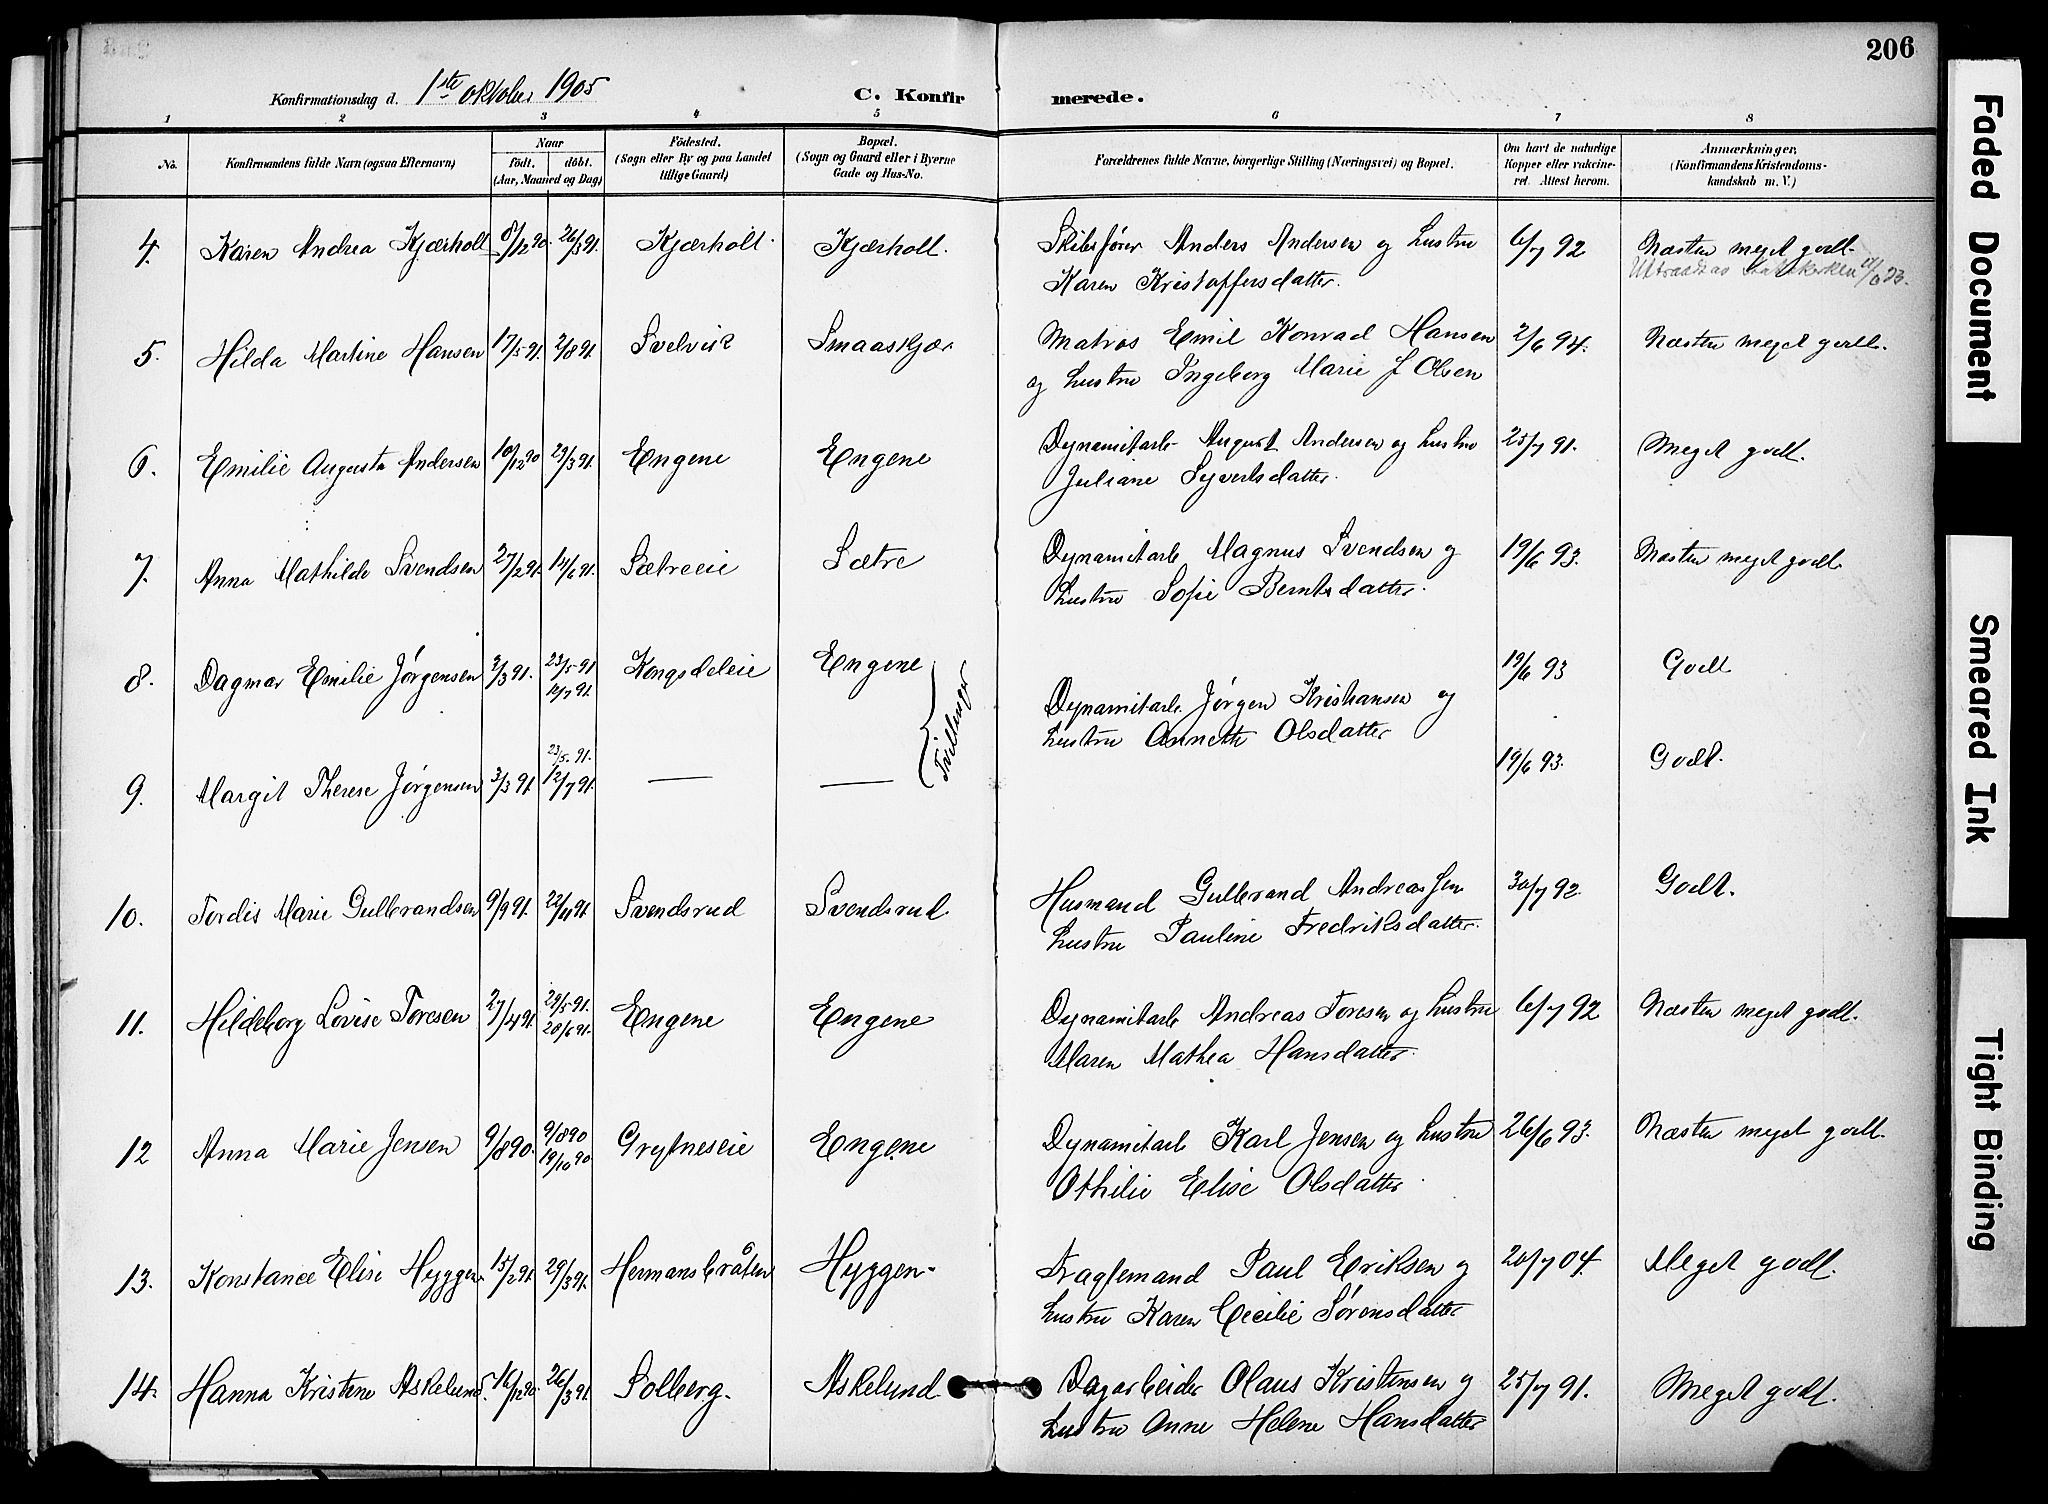 206
Konfirmationsdag d. 1ste oktober 1905 C. Konfirmerede.
1 2 3 4 5 6 7 8
No. Konfirmandens fulde Navn (ogsaa Efternavn) Naar født. døbt. (Aar, Maaned og Dag) Fødested. (Sogn eller By og paa Landet tillige Gaard) Bopæl. (Sogn og Gaard eller i Byerne Gade og Hus-No. Forældrenes fulde Navne, borgerlige Stilling (Næringsvei) og Bopæl. Om havt de naturlige Kopper eller vaccineret. Attest herom. Anmærkninger, (Konfirmandens Kristendomskundskab m. V.)
4. Karen Andrea Kjærholt 8/12 90. 26/3 91. Kjærholt. Kjærholt. Skibsfører Anders Andersen og hustru 6/7 92 Næsten meget godt.
Karen Kristoffersdatter. Uttraadt av statskirken
5. Hilda Martine Hansen 17/5 91. 2/8 91. Svelvik Smaaskjær Matros Emil Konrad Hansen 2/6 94. Næsten meget godt.
og hustru Ingeborg Marie J Olsen
6. Emilie Augusta Andersen 10/12 90 29/3 91. Engene Engene Dynamitarb. August Andersen og hustru 25/7 91. Meget godt.
Juliane Syvertsdatter.
7. Anna Mathilde Svendsen 27/2 91. 14/6 91. Sætreeie Sætre Dynamitarb Magnus Svendsen og 19/6 93. Næsten meget godt.
hustru Sofie Berntsdatter.
8. Dagmar Emilie Jørgensen 3/3 91. 23/5 91 12/7 91. Kongsdeleie Engene 19/6 93 Godt
Tvillinger
Dynamitarb. Jørgen Kristiansen og
hustru Annette Olsdatter
9. Margit Therese Jørgensen 3/3 91. 23/5. 91. 12/7 91. — — 19/6 93. Godt.
10. Tordis Marie Gulbrandsen 9/9 91. 22/11 91. Svendsrud Svendsrud. Husmand Gulbrand Andreassen 30/7 92. Godt.
hustru Pauline Fredriksdatter.
11. Hildeborg Lovise Toresen 27/4 91. 29/5 91. 20/6 91. Engene Engene Dynamitarb Andreas Toresen og hustru 6/7 92 Næsten meget godt.
Maren Mathea Hansdatter.
12 Anna Marie Jensen 9/8 90. 9/8 90 19/10 90 Grytneseie Engene Dynamitarb Karl Jensen og hustru 26/6 93. Næsten meget godt.
Othilie Elise Olsdatter
13. Konstance Elise Hyggen. 15/2 91. 29/3 91. Hermansbråten Hyggen. Fragtemand Paul Eriksen og 20/7 04. Meget godt.
hustru Karen Cecilie Sørensdatter
14. Hanna Kristine Askelund. 16/12 90. 26/3 91. Solberg. Askelund Dagarbeider Olaus Kristensen og 25/7 91. Meget godt.
hustru Anne Helene Hansdatter
Faded Document
Smeared Ink
Tight Binding